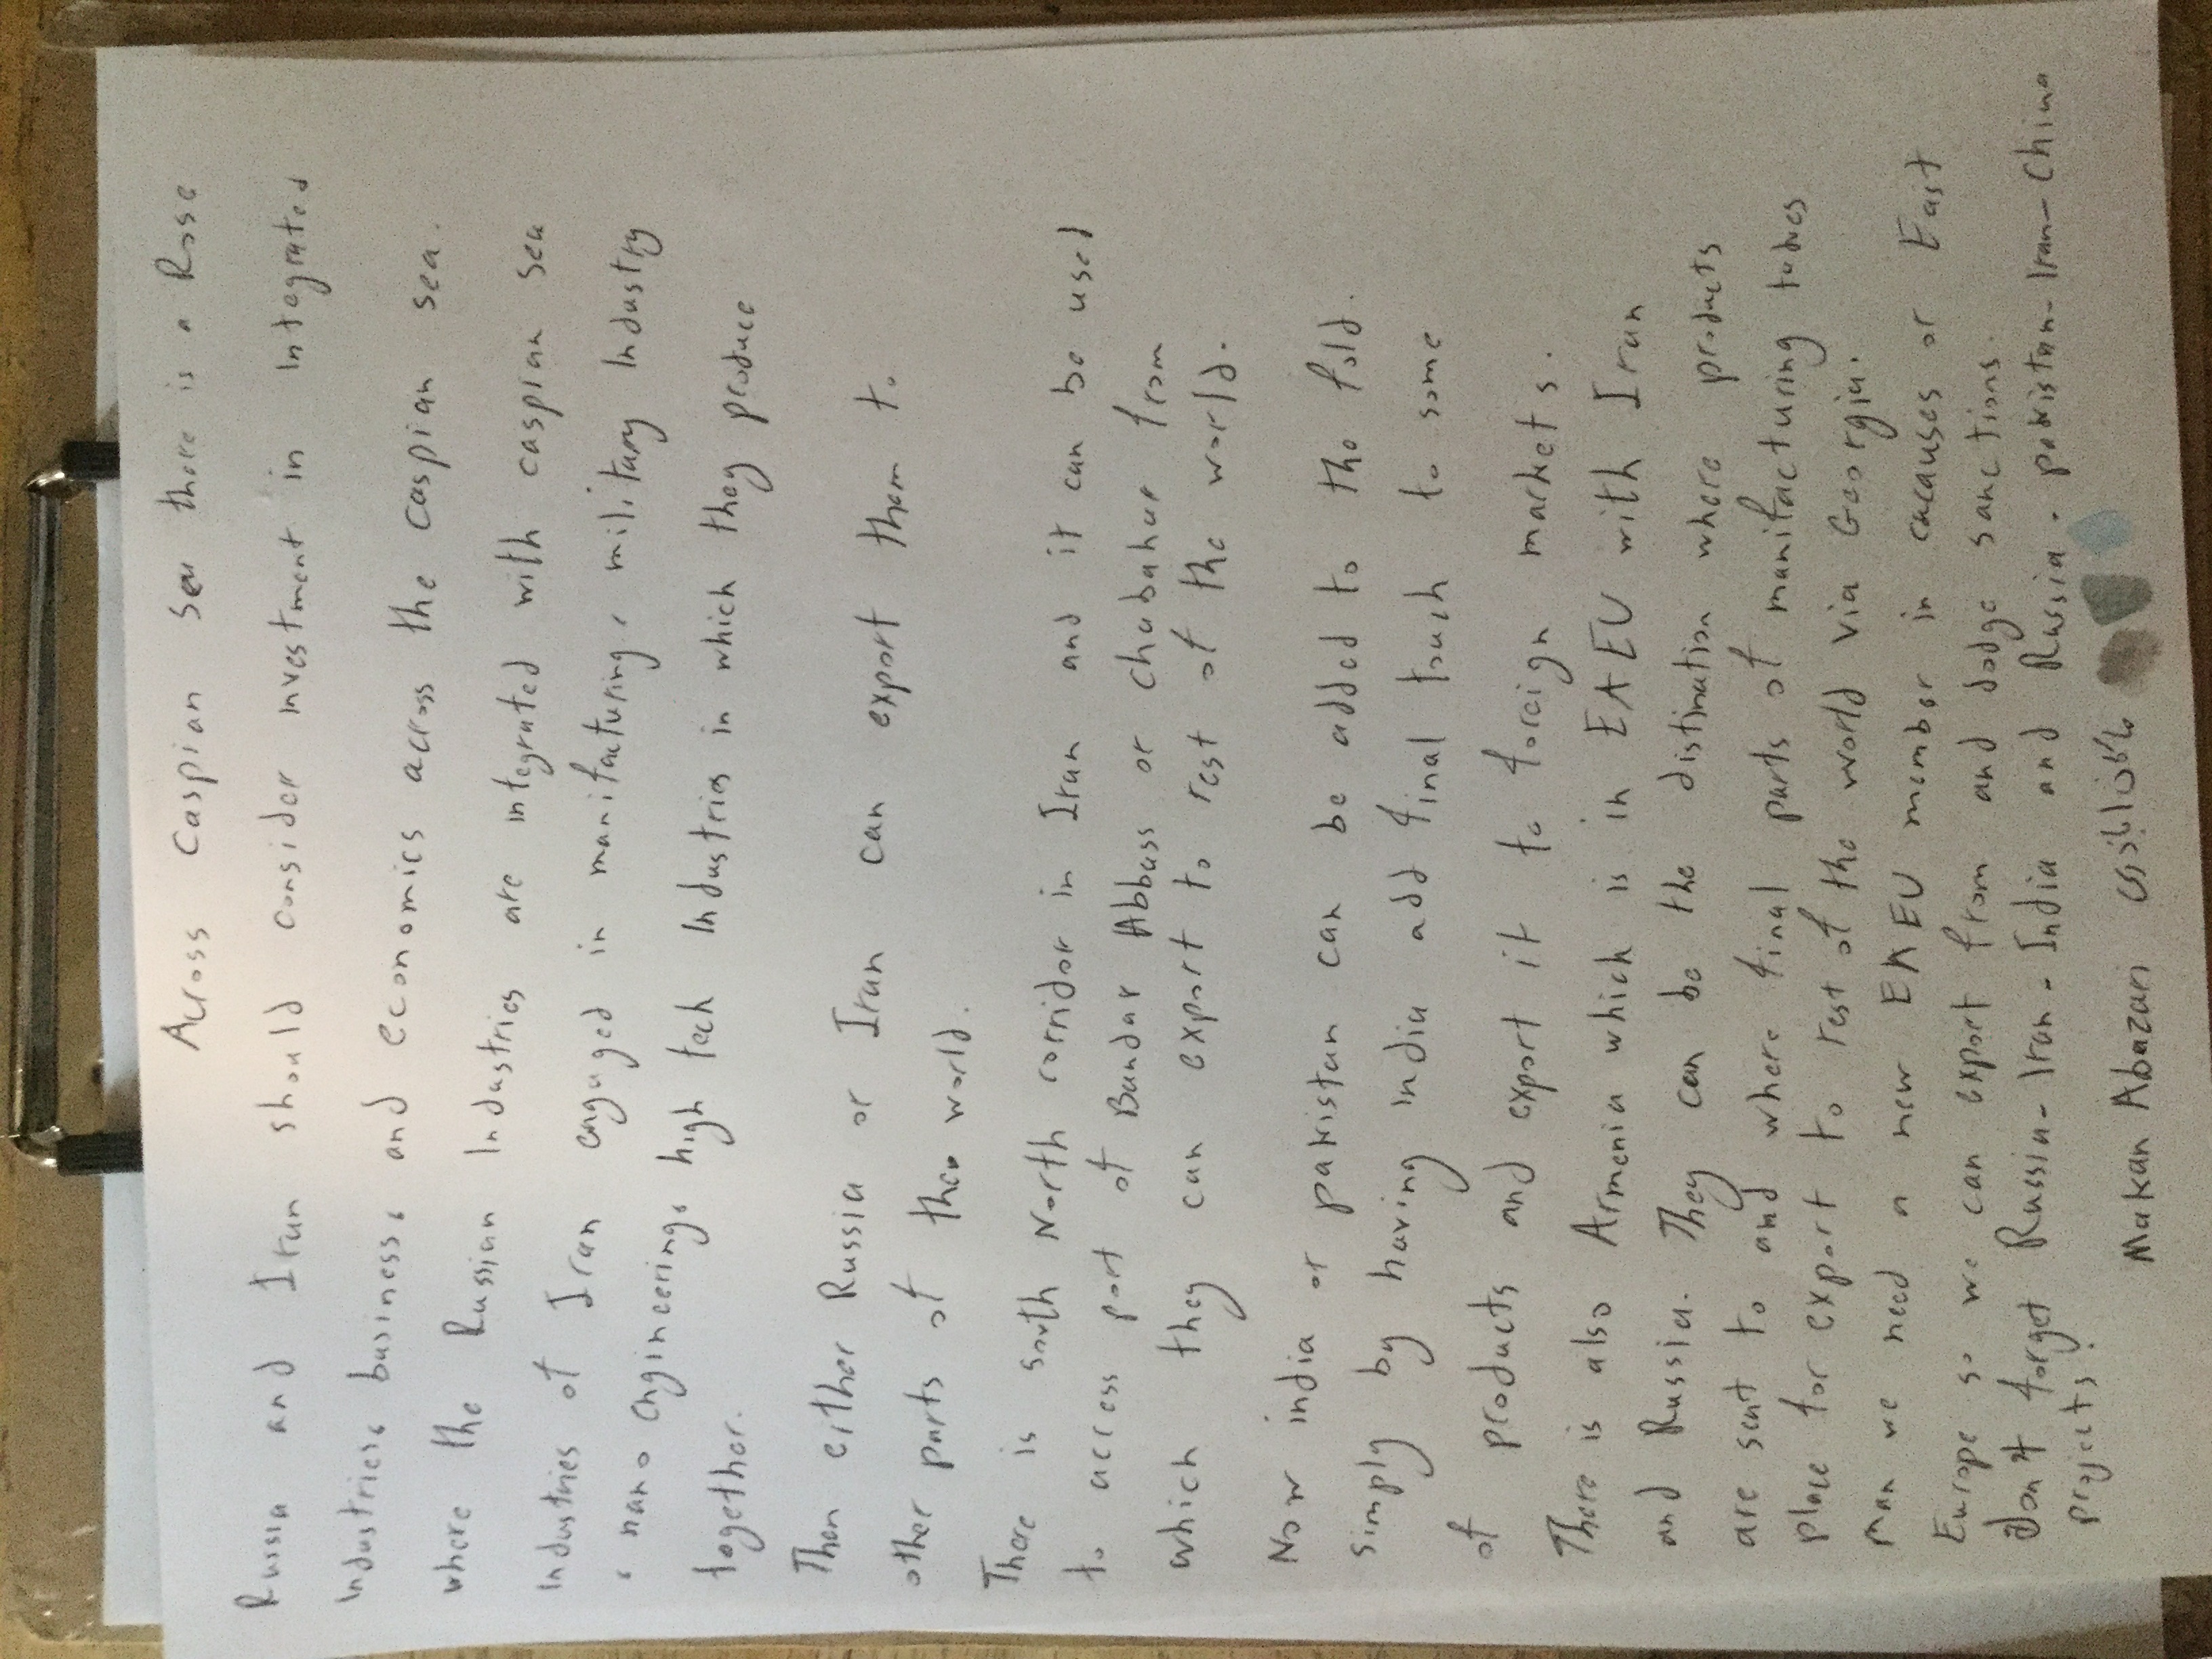 Across Caspian Sea there is a Rose
Russia and Iran should consider investment in Integrated
Industries, business, and economics across the caspian sea.
where the Russian Industries are integrated with caspian sea
Industries of Iran engaged in manifaturing, military Industry
, nano engineering, high tech Industries in which they produce
together.
Then either Russia or Iran can export them to
other parts of the world.
There is south North corridor in Iran and it can be used
to access port of Bandar Abbass or chabahar from
which they can export to rest of the world.
Now india or pakistan can be added to the fold.
simply by having india add final touch to some
of products and export it to foreign markets.
There is also Armenia which is in EAEU with Iran
and Russia. They can be the distination where products
are sent to and where final parts of manifacturing takes
place for export to rest of the world via Georgia.
Man we need a new EAEU member in cacauses or East
Europe so we can export from and dodge sanctions.
don't forget Russia-Iran-India and Russia-pakistan-Iran-China
projects!
Makan Abazari